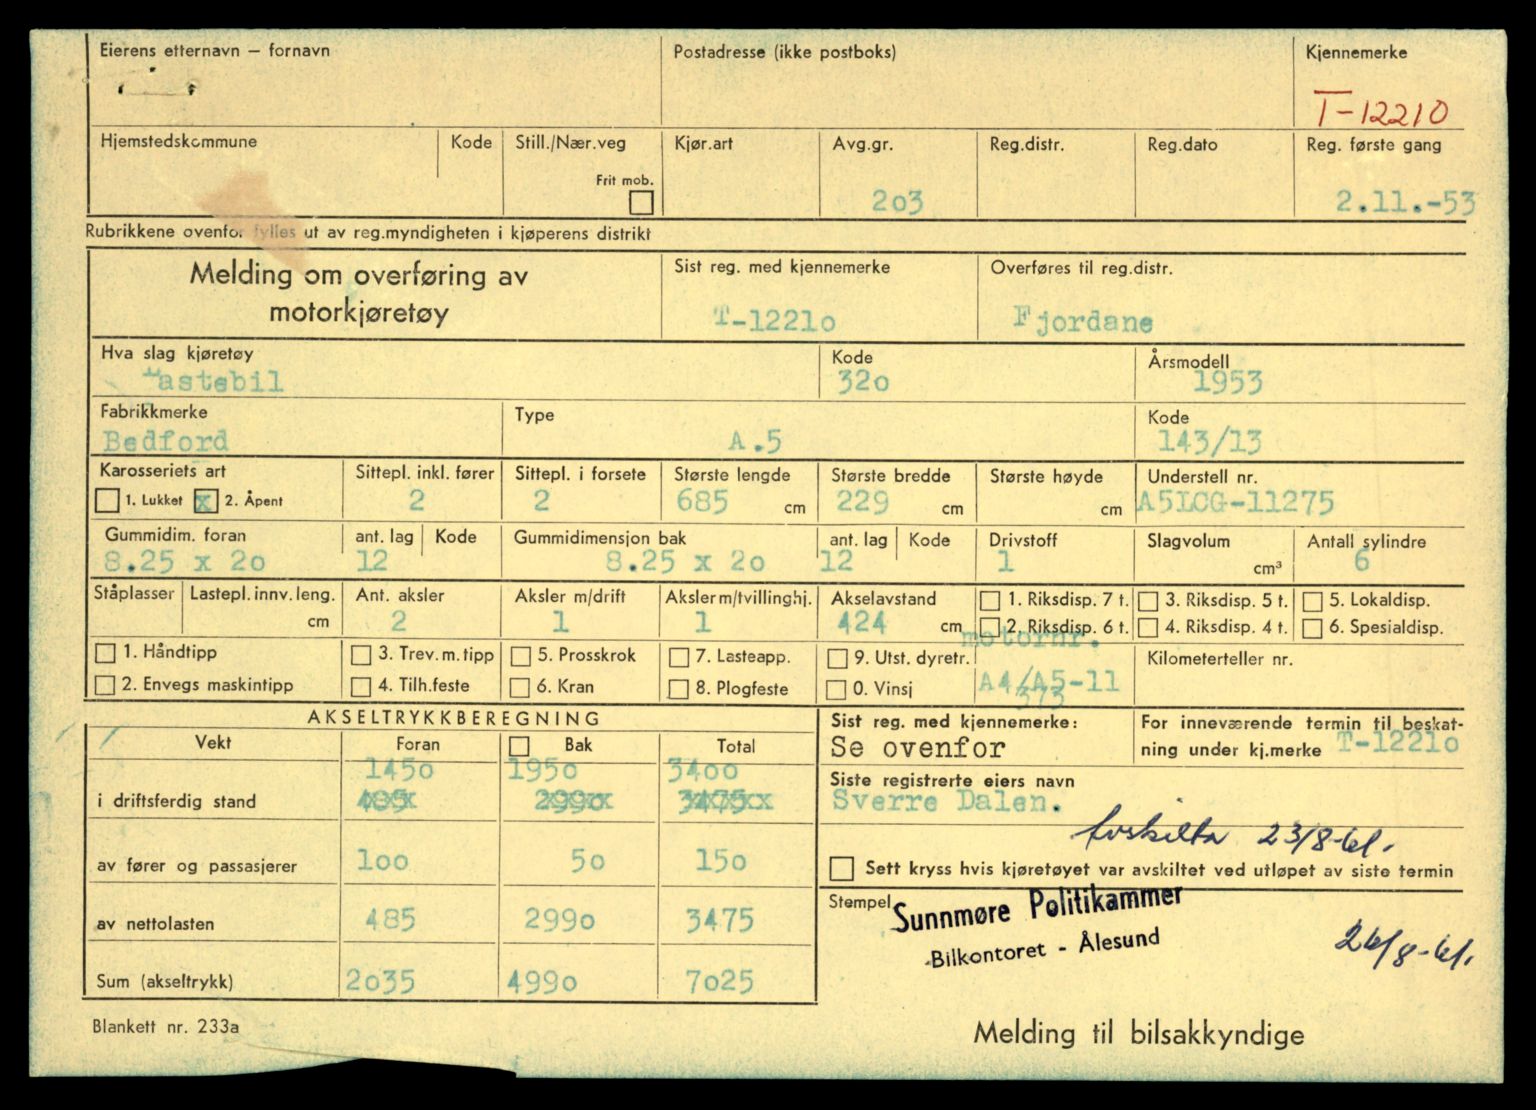 Eierens etternavn – fornavn
Postadresse (ikke postboks)
Kjennemerke
T-12210
Hjemstedskommune
Kode
Still./Nær.veg
Frit mob.
Kjør.art
Avg.gr.
203
Reg.distr.
Reg.dato
Reg. første gang
2.11.-53
Rubrikkene ovenfor fylles ut av reg.myndigheten i kjøperens distrikt
Melding om overføring av
motorkjøretøy
Sist reg. med kjennemerke
T-12210
Overføres til reg.distr.
Fjordane
Hva slag kjøretøy
Lastebil
Kode
320
Årsmodell
1953
Fabrikkmerke
Bedford
Type
A.5
Kode
143/13
Karosseriets art
1. Lukket x 2. Åpent
Sittepl. inkl. fører
2
Sittepl. i forsete
2
Største lengde
685 cm
Største bredde
229 cm
Største høyde
cm
Understell nr.
A5LCG-11275
Gummidim. foran
8.25 x 20
ant. lag
12
Kode
Gummidimensjon bak
8.25 x 20
ant. lag
12
Kode
Drivstoff
1
Slagvolum
cm³
Antall sylindre
6
Ståplasser
Lastepl. innv. leng.
cm
Ant. aksler
2
Aksler m/drift
1
Aksler m/tvillinghj.
1
Akselavstand
424 cm
1. Riksdisp. 7 t.
3. Riksdisp. 5 t.
5. Lokaldisp.
2. Riksdisp. 6 t.
4. Riksdisp. 4 t.
6. Spesialdisp.
motornr.
1. Håndtipp
3. Trev. m. tipp
5. Prosskrok
7. Lasteapp.
9. Utst. dyretr.
Kilometerteller nr.
2. Envegs maskintipp
4. Tilh.feste
6. Kran
8. Plogfeste
0. Vinsj
A4/A5-11
373
AKSELTRYKKBEREGNING
Vekt
Foran
Bak
Total
1450 1950 3400
i driftsferdig stand 485 2990 3475
av fører og passasjerer 100 50 150
av nettolasten 485 2990 3475
Sum (akseltrykk) 2035 4990 7025
Sist reg. med kjennemerke:
Se ovenfor
For inneværende termin til beskat-
ning under kj.merke T-12210
Siste registrerte eiers navn
Sverre Dalen.
Avskilta 23/8-61.
Sett kryss hvis kjøretøyet var avskiltet ved utløpet av siste termin
Stempel
Sunnmøre Politikammer
Bilkontoret - Ålesund
26/8-61.
Blankett nr. 233a
Melding til bilsakkyndige